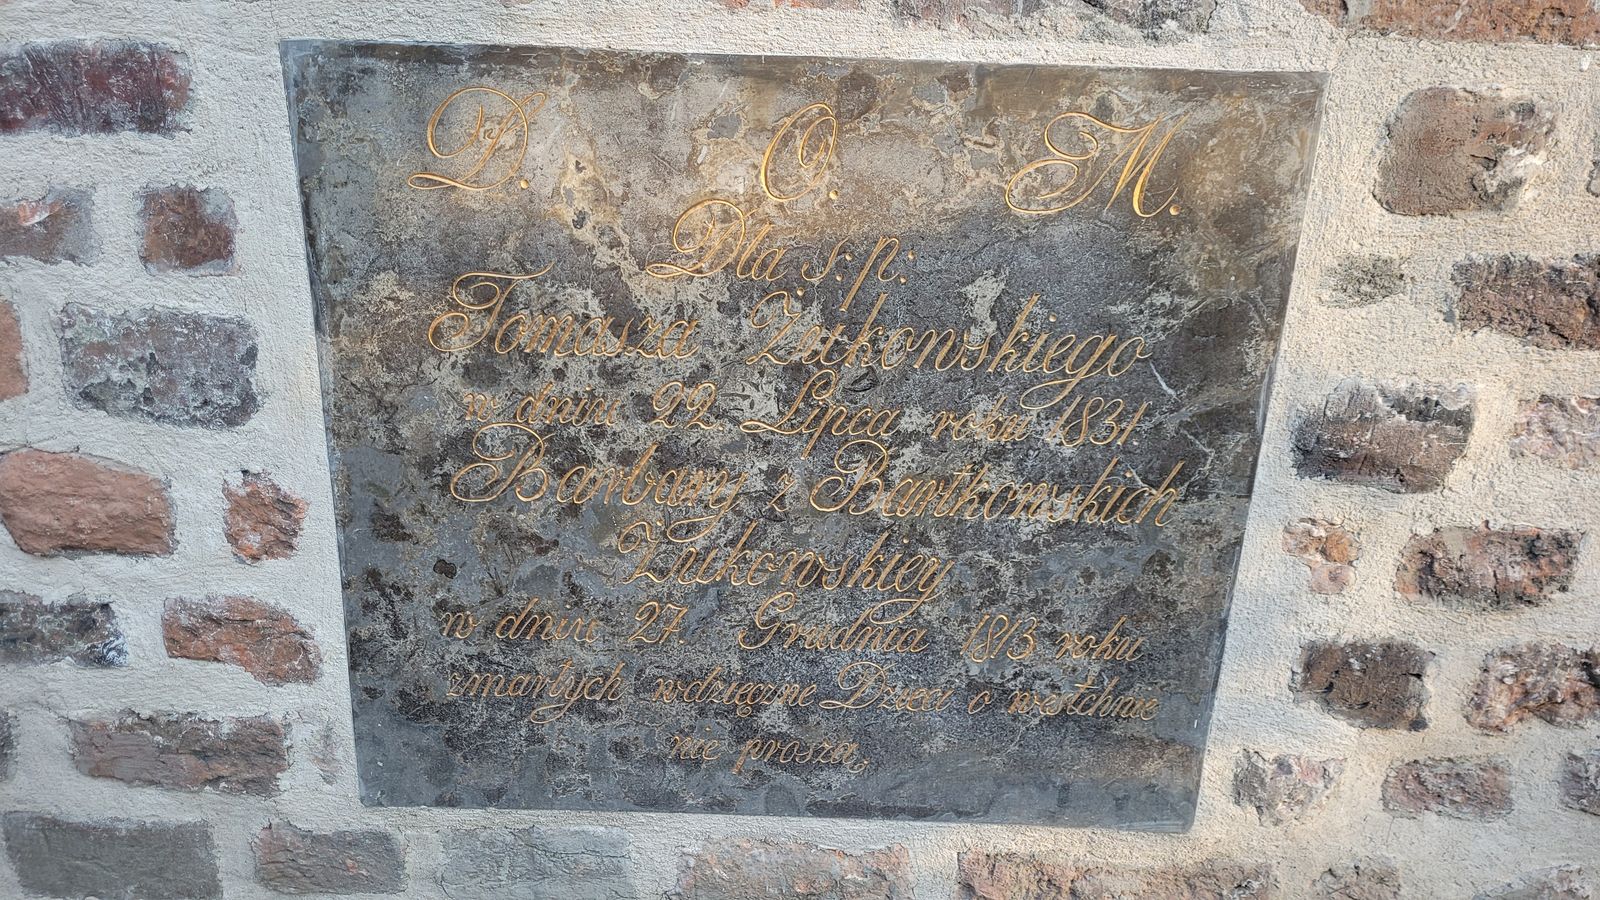 D. O. M.
Dla ś:p:
Tomasza Żukowskiego
w dniu 22. Lipca roku 1831.
Barbary z Bartkowskich
Żukowskiey
w dniu 27. Grudnia 1813 roku
zmarłych wdzięczne Dzieci o westchnie
nie proszą,